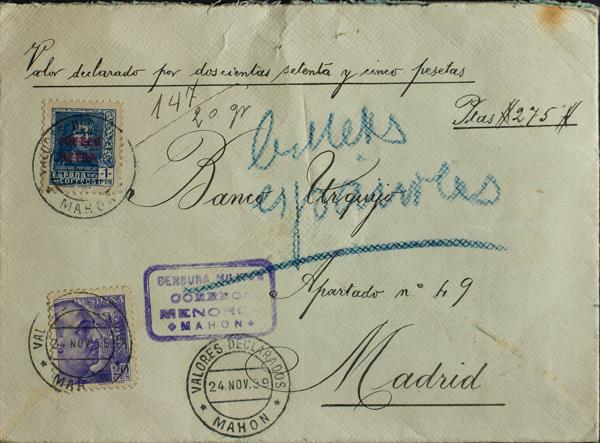 Valor declarado por doscientas setenta y cinco pesetas
Ptas #275#
147
20 gr
billetes
españoles
Banco Urquijo
Apartado nº 49
Madrid
CORREO
AEREO
ESPAÑA
CORREOS
1
MAHON
CENSURA MILITAR
CORREOS
MENORCA
MAHON
ESPAÑA
20
24 NOV. 39
MAH
VALORES DECLARADOS
24 NOV. 39
MAHON